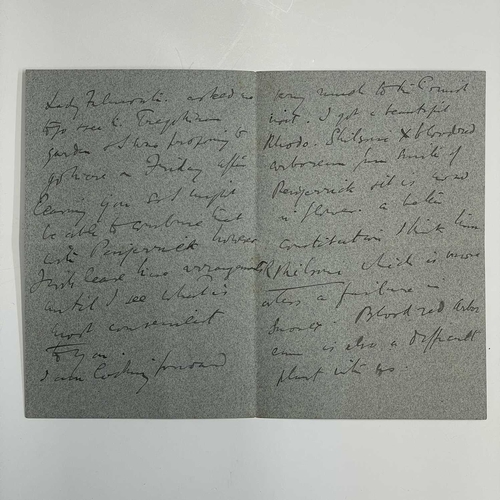 Lady Falmouth. asked me
to go see the Tregothnan
garden & I was proposing to
go there on Friday after
leaving you so I might
be able to combine that
with Penjerrick however
I will leave this arrangement
until I see what is
most convenient
to you.
I am looking forward
very much to the Cornish
visit. I got a beautiful
Rhodo. Shilsoni x blood red
arboreum from Smith of
Penjerrick & it is now
in flower. a better
constitution I think than
Shilsoni which is more
or less a failure in
Blood red arbor
eum is also a difficult
plant with us.